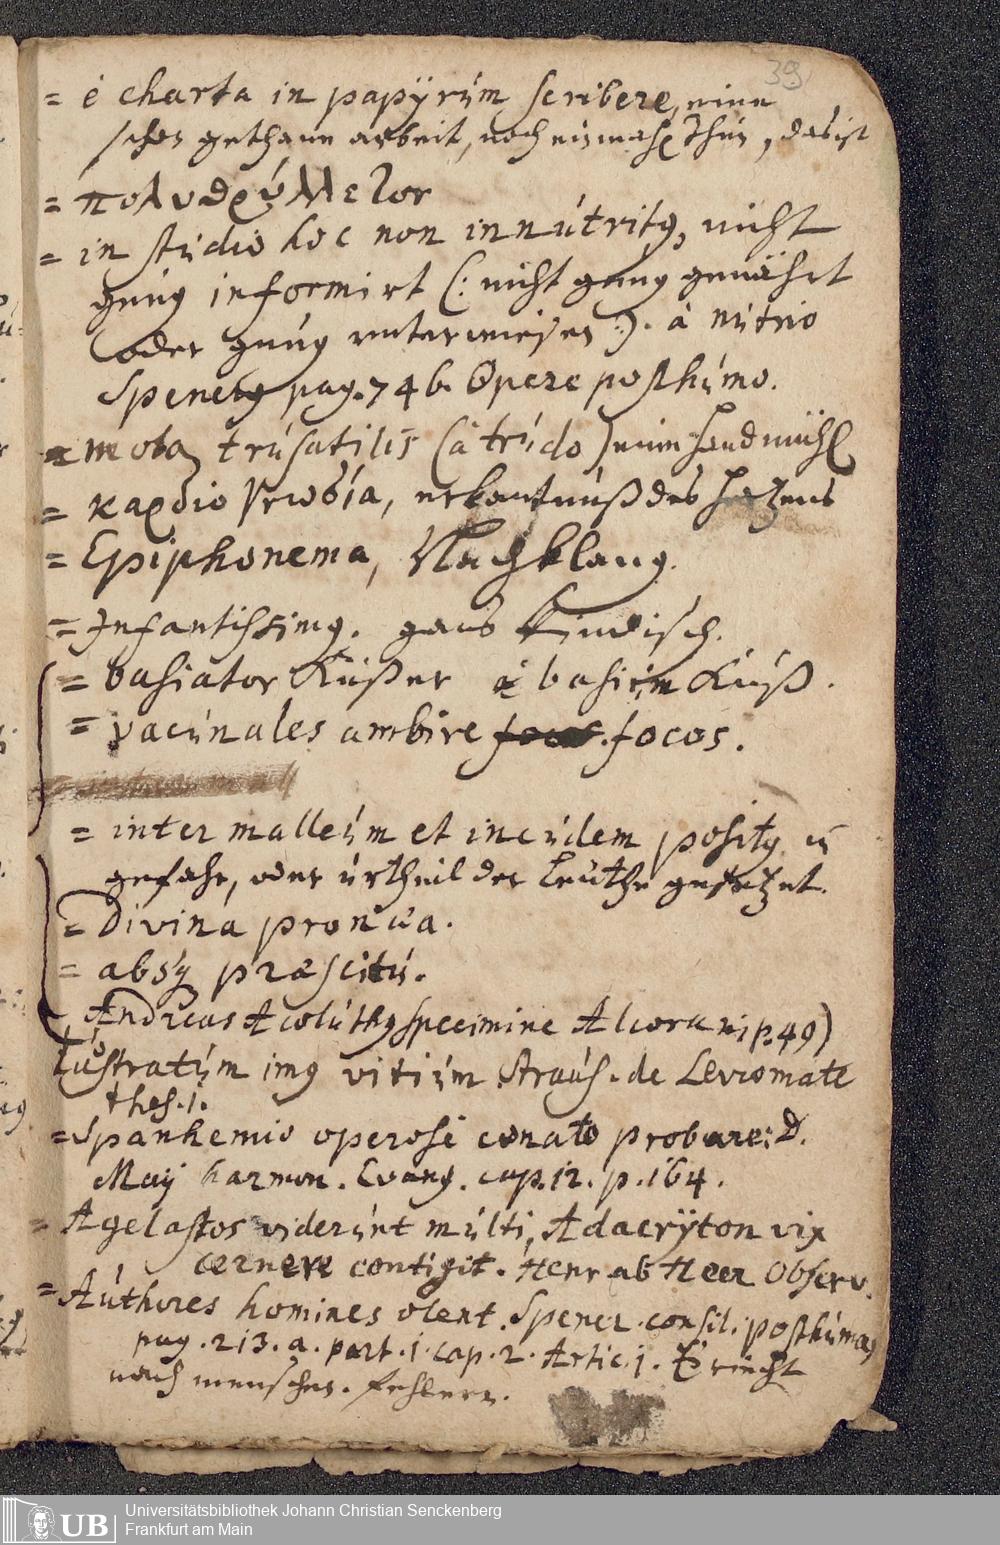 39
= è charta in papÿrúm scribere, eine
schon gethane arbeit, noch einmahl thun, das ist
= πολυδεύ
= in stúdio hoc non innútritg, nicht
genúg informirt (: nicht genug genährt
oder genúg unterwiesen :). à nútrio
Spenerg pag. 74 b. Opere posthúmo.
= mola trúsatilis (à trúdo) eine handmühl
= καρδιογνωσία, erkantnúß des Hertzens
= Epiphonema, Nachklang.
= Infantissimg. gantz Kindisch.
= basiator Küßer à basiúm Kúß.
= vacúnales ambire focos.
= inter malleúm et incúdem positg in
gefahr, oder úrtheil der Leúthe gesetzet.
= Divina pronœa.
= absq præscitú.
Andreas Acolúthg specimine Alcorani p. 49)
Lústratúm img vitiúm Straús. de
thes. 1.
= Spanhemio operose conato probare: D.
Maij harmon. Evang. cap. 12. p. 164.
= Agelastos viderúnt múlti, Adacrÿton vix
cernere contigit. Henr ab Heer Observ.
= Aúthores homines olent. Spener. consil. posthúma,
pag. 213. a. part. 1. cap. 2. Artic. 1. Es riecht
nach menschen. fehlern.
Universitätsbibliothek Johann Christian Senckenberg
Frankfurt am Main
UB